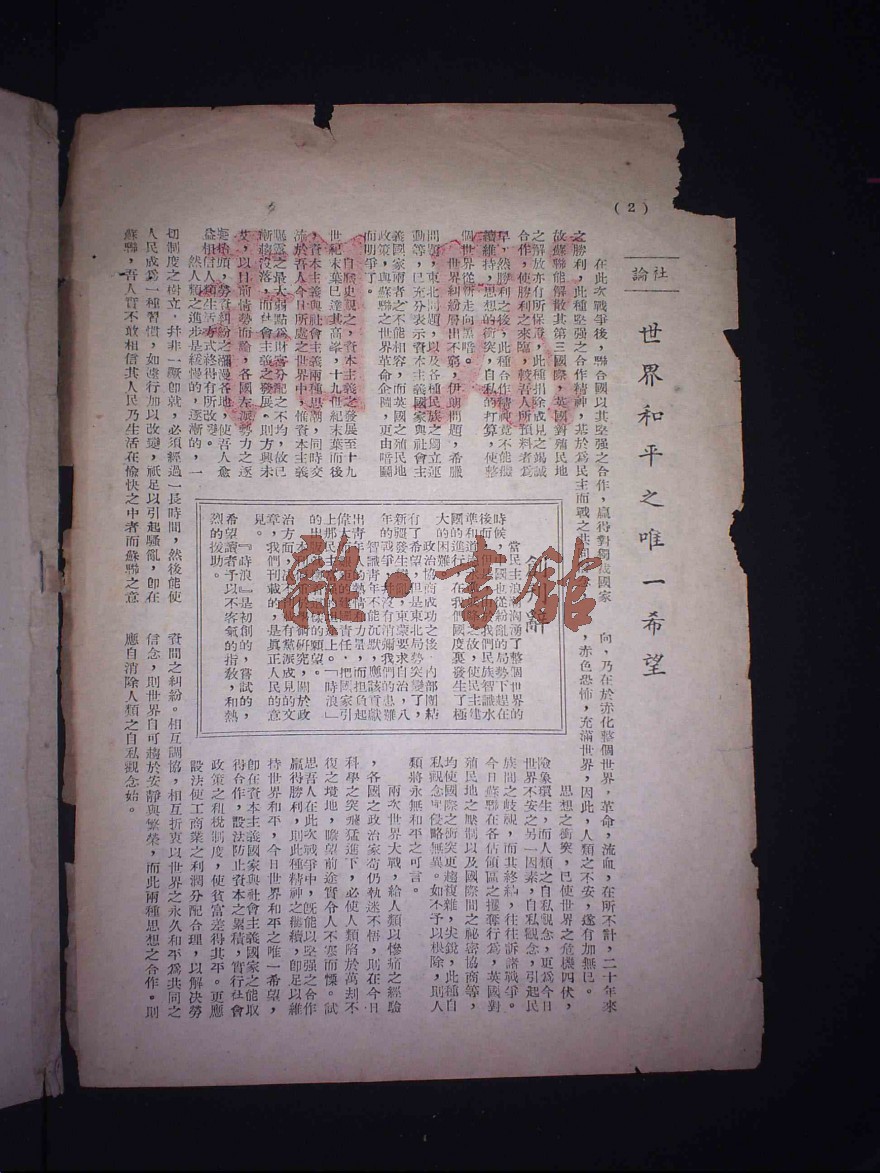 (2)
社論
世界和平之唯一希望
在此次戰爭後，聯合國以其堅强之合作，贏得對獨裁國家
之勝利，此種堅强之合作精神，基於爲民主而戰之共同
故蘇聯能解散其第三國際，英國對殖民地
之解放亦有所保證，此種捐除成見之竭誠
合作，使勝利之來臨，較吾人所預料者爲
早，然勝利之後，此種合作精神竟不能繼
續維持，思想的衝突，自私的打算，使整
個世界從新走向黑暗。
世界糾紛層出不窮，伊朗問題，希臘
問題，東北問題，以及各種民族之獨立運
動等，已充分表示資本主義國家與社會主
義國家兩者之不能相容，而英國之殖民地
政策，與蘇聯之世界革命企圖，更由暗鬭
而明爭了。
自歷史觀之，資本主義之發展至十九
世紀末葉已達其高峯，十九世紀末葉而後
，資本主義與社會主義兩種思潮，同時交
流於吾人今日所處之世界中，惟資本主義
曝露之最大弱點爲財富分配之不均，故已
漸趨沒落，而社會主義之發展，則方興未
艾，以目前情勢而論，各國左派勢力之逐
漸抬頭，勞資糾紛之瀰漫各地，使吾人愈
益相信人類生活方式終得有所改變。
然人類之進步是緩慢的，逐漸的，一
切制度之樹立，并非一蹶卽就，必須經過一長時間，然後能使
人民成爲一種習慣，如遽行加以改變，祇足以引起騷亂，卽在
蘇聯，吾人實不敢相信其人民乃生活在愉快之中者而蘇聯之意
向，乃在於赤化整個世界，革命，流血，在所不計，二十年來
，赤色恐怖，充滿世界，因此，人類之不安，遂有加無已。
思想之衝突，已使世界之危機四伏，
險象環生，而人類之自私觀念，更爲今日
世界不安之另一因素，自私觀念，引起民
族間之歧視，而其終結，往往訴諸戰爭。
今日蘇聯在各佔領區之攫奪行爲，英國對
殖民地之壓制以及國際間之祕密協商等，
均使國際之衝突更趨複雜，尖銳，此種自
私觀念卽侵略無異。如不予以根除，則人
類將永無和平之可言。
兩次世界大戰，給人類以慘痛之經驗
，各國之政治家苟仍執迷不悟，則在今日
科學之突飛猛進下，必使人類陷於萬刦不
復之境地，瞻望前途實令人不寒而慄。試
思吾人在此次戰爭中，旣能以堅强之合作
贏得勝利，則此種精神之繼續，卽足以維
持世界和平，今日世界和平之唯一希望，
卽在資本主義國家與社會主義國家之能取
得合作，設法防止資本之累積，實行社會
政策之租稅制度，使貧富差得其平。更應
設法使工商業之利潤分配合理，以解决勞
資間之糾紛。相互調協，相互折衷以世界之永久和平爲共同之
信念，則世界自可趨於安靜與繁榮，而此兩種思想之合作。則
應自消除人類之自私觀念始。
辭
當民主浪潮洶湧了整個世界的
時候，
國也從紛亂的局勢下趕在
後面，
我們民族智識水
準和道
之故，使民主建
國的進行，在我們國度裏發生了極
大的困難。
政治協商成功之後，內部團結
有了希望，但是東北局勢突變了，
新疆發生
，東蒙要求自治，八
年的戰爭
沒有消彌我們的患難
智識青年不能沉默，應該貢獻
出青年的熱情和力量，而担負起
偉大
建
責任，把國家引
上那民主
上。「時浪」
的出
樣的願望。
術研究，關於政
治方面，
有黨派成見的文
章，我們刊載的，是眞正人民的意
見。
『時浪』是初創的，嘗試的，
希望讀者予以不客氣的指敎，和熱
烈的援助。
書館